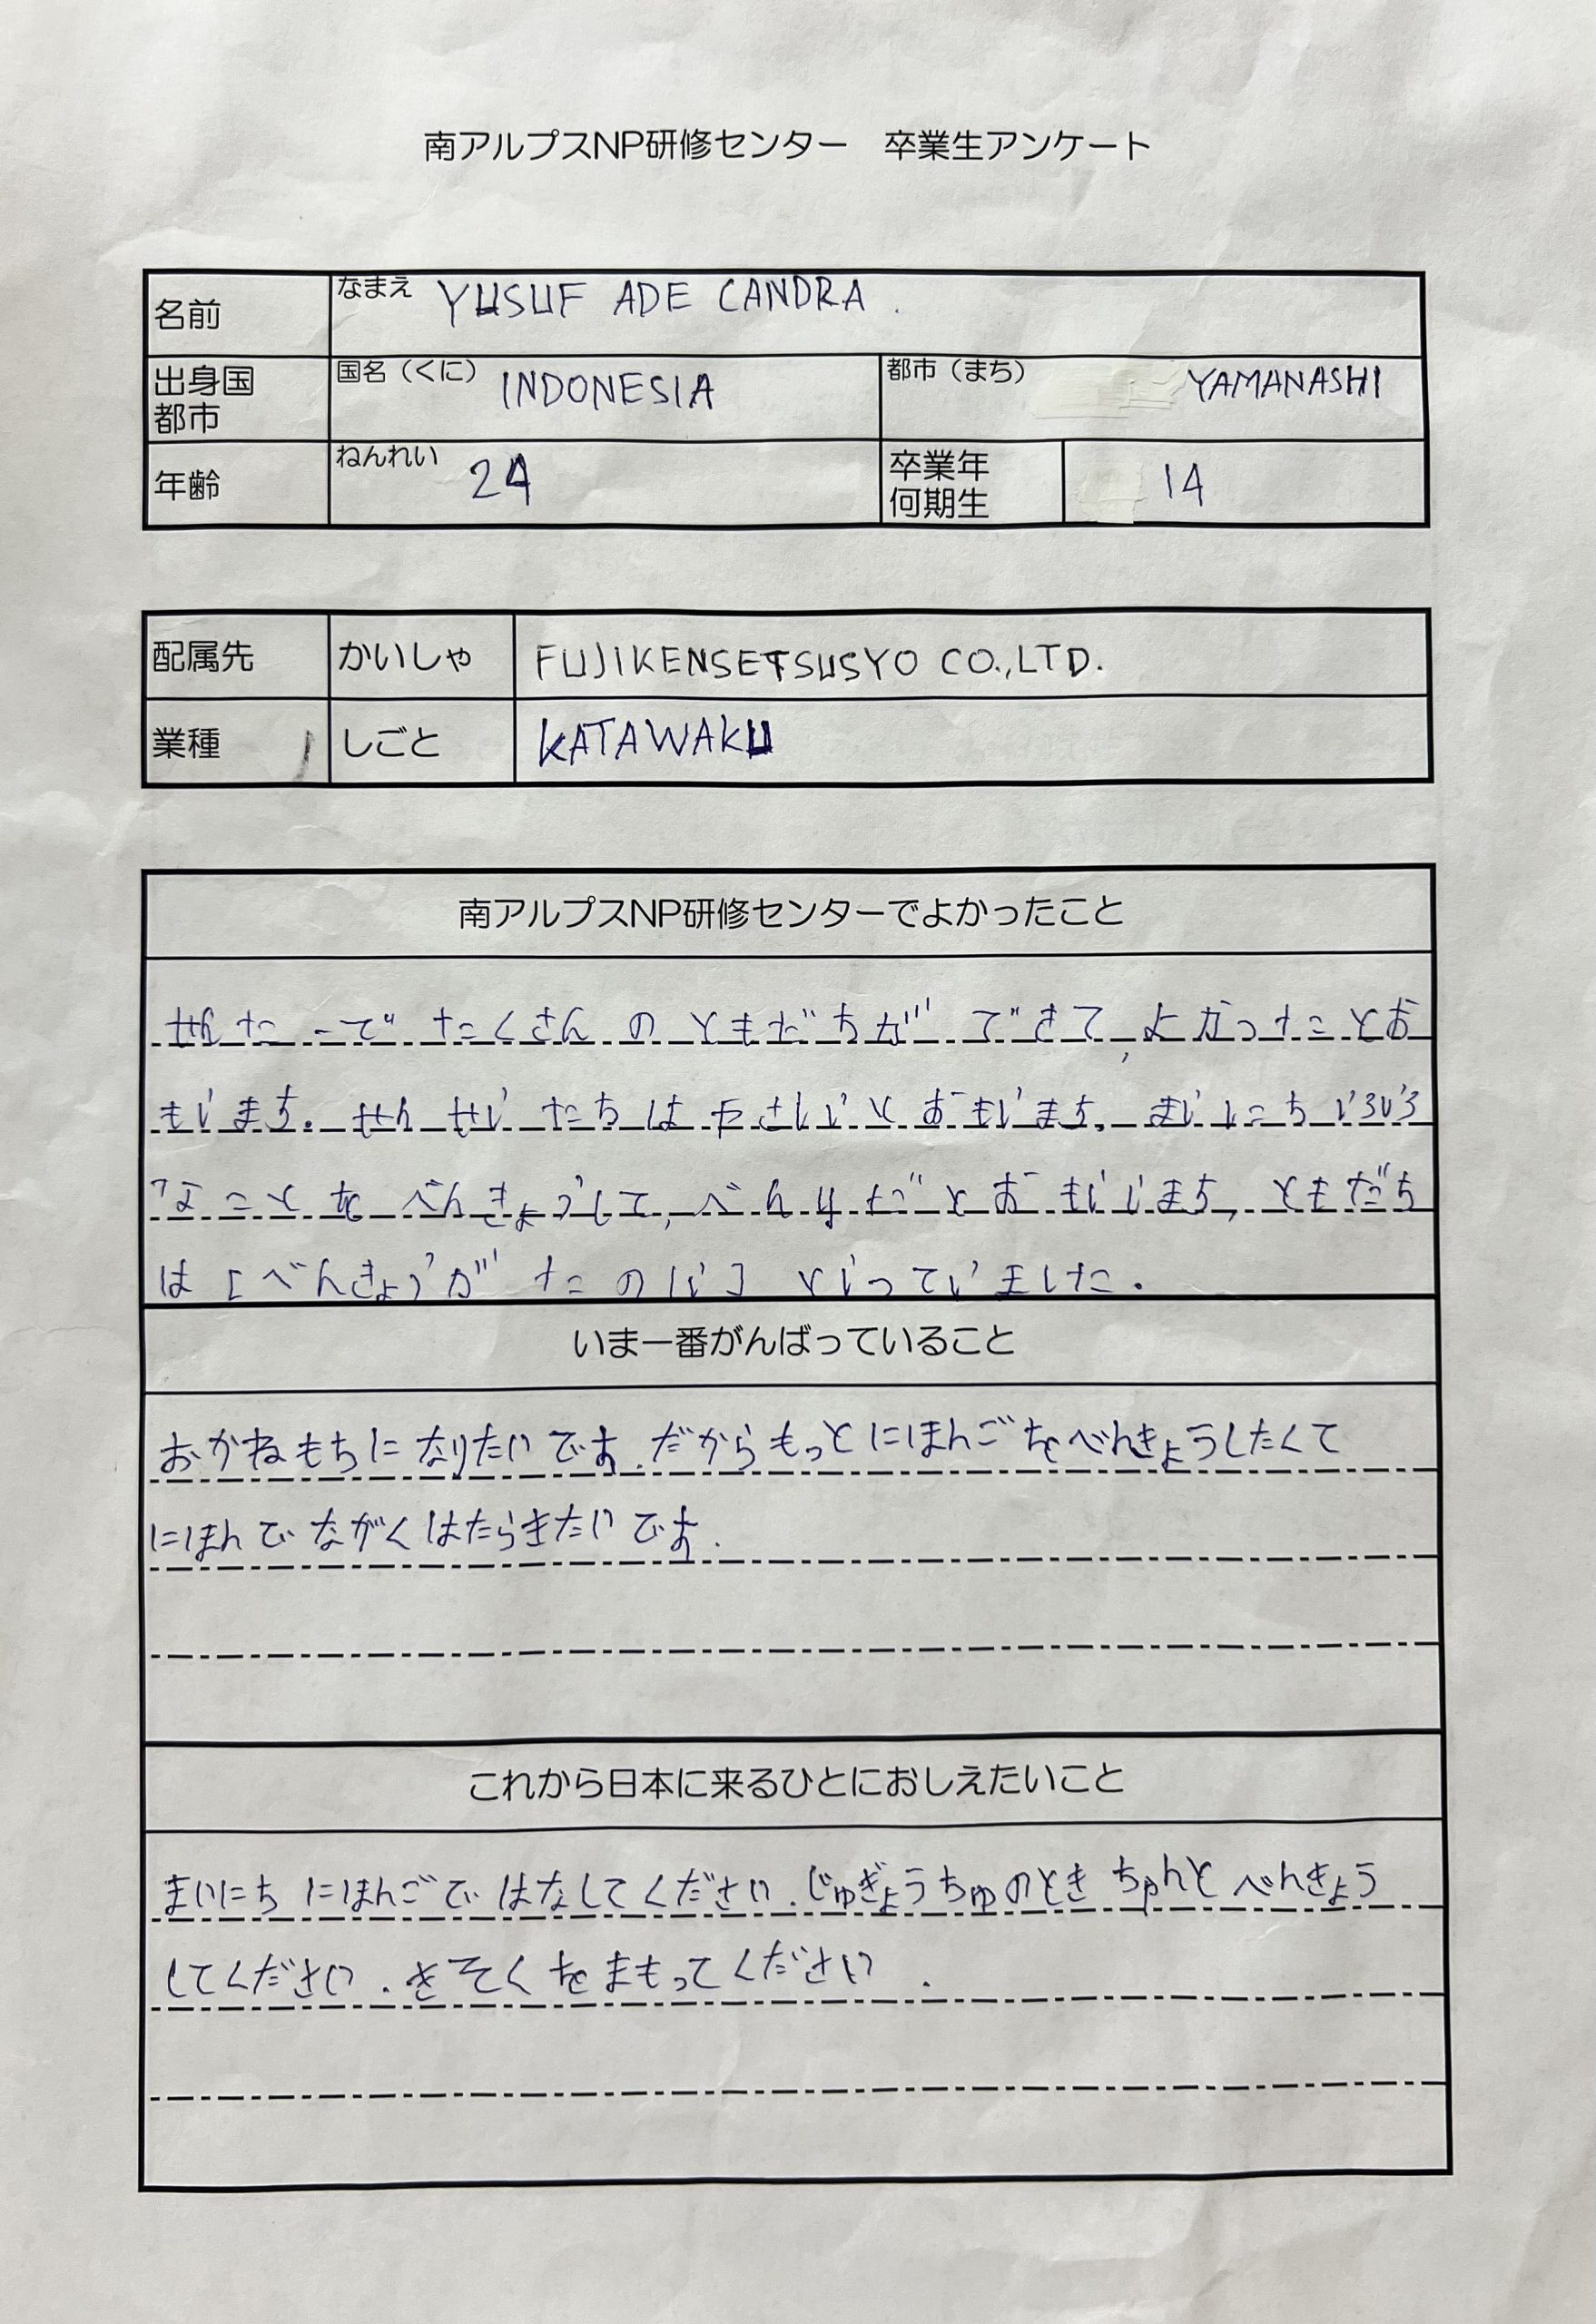 南アルプスNP研修センター　卒業生アンケート
名前 なまえ YUSUF ADE CANDRA .
出身国都市 国名（くに） INDONESIA 都市（まち） YAMANASHI
年齢 ねんれい 24 卒業年何期生 14
配属先 かいしゃ FUJIKENSETSUSYO CO.,LTD.
業種 しごと KATAWAKU
南アルプスNP研修センターでよかったこと
せんたーで たくさん の ともだちが できて, よかったとお
もいます. せんせい たちは やさしいと おもいます. まいにち いろいろ
なことを べんきょうして, べんりだと おもいします, ともだち
は [べんきょうが たのしい] といっていました.
いま一番がんばっていること
おかねもちに なりたいです. だから もっと にほんごを べんきょうしたくて
にほんで ながく はたらきたい です.
これから日本に来るひとにおしえたいこと
まいにち にほんごで はなしてください. じゅぎょうちゅのとき ちゃんと べんきょう
してください. きそくを まもってください .